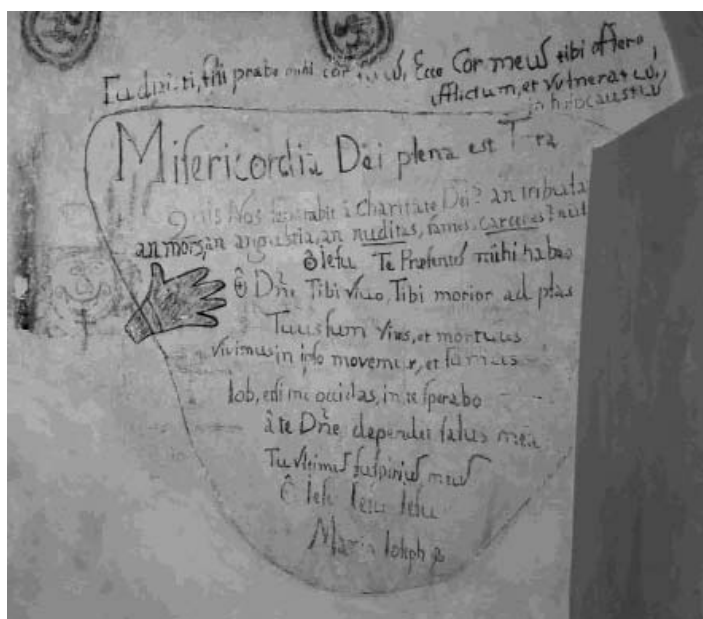 Tu dixisti, fili prabe mihi cor tuuʃ, Ecce Cor meuſ tibi offero,
afflictum, et vulneratuʃ,
in holocauſtuʃ
Miſericordia Dei plena est T~ra
Quis Nos ſeparabit â Charitate Dei? an tribulatio
an mors, an anguſtia, an nuditas, fames, carceres? nist
ô Ieſu Te Preſenteſ mihi habeo
ô Dñe Tibi vivo, Tibi morior ad ptas
Tuus ſum vivus, et mortuus
vivimus in ipſo movemur, et ſumus
Iob, etſi me occidas, in te ſperabo
â te Dñe dependet ſalus mea
Tu vltimuſ ſuſpiriuſ meuſ
Ô Ieſu Ieſu Ieſu
Maria Ioſeph